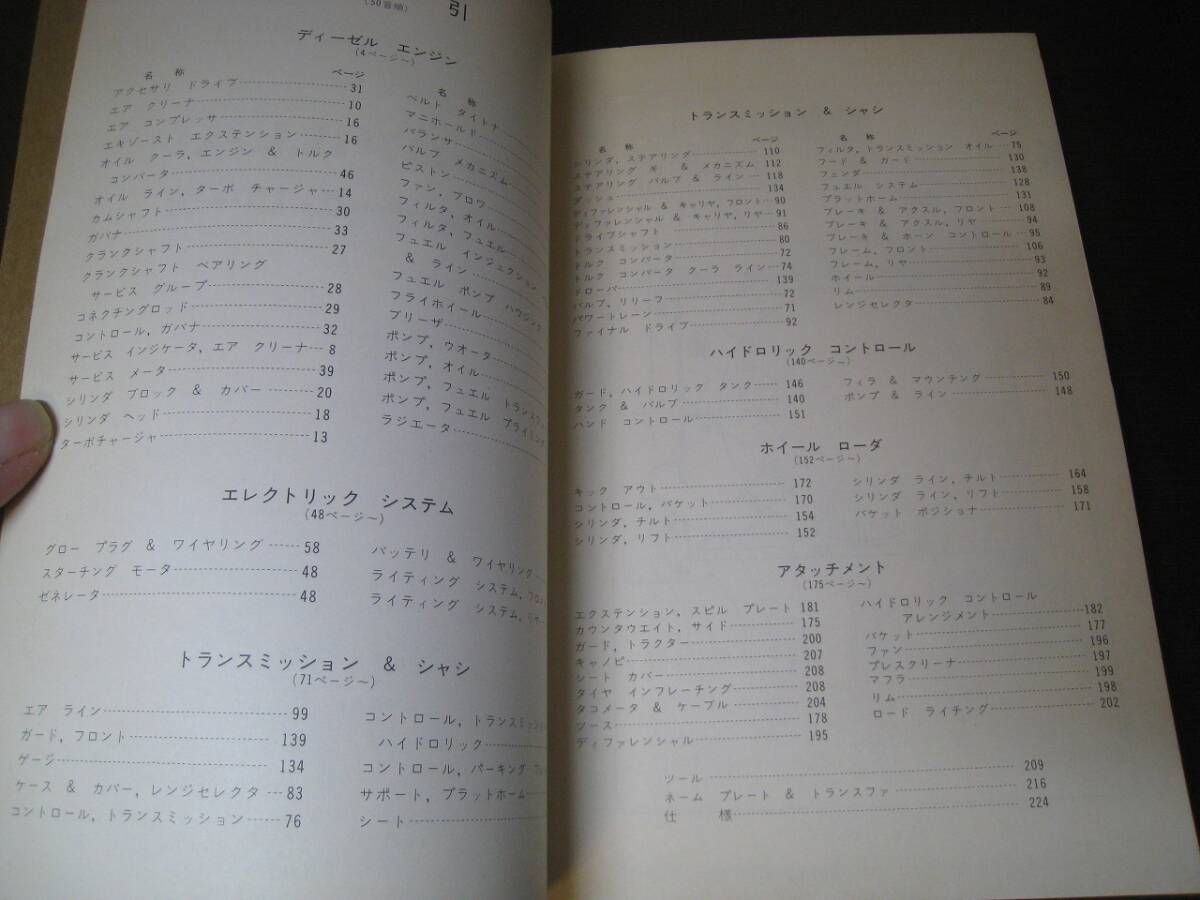 引
(50音順)
ディーゼル エンジン
(4ページ～)
名 称 ページ
アクセサリ ドライブ 31
エア クリーナ 10
エア コンプレッサ 16
エキゾースト エクステンション 16
オイル クーラ, エンジン & トルク
コンバータ 46
オイル ライン, ターボ チャージャ 14
カムシャフト 30
ガバナ 33
クランクシャフト 27
クランクシャフト ベアリング
サービス グループ 28
コネクチングロッド 29
コントロール, ガバナ 32
サービス インジケータ, エア クリーナ 8
サービス メータ 39
シリンダ ブロック & カバー 20
シリンダ ヘッド 18
ターボチャージャ 13
名 称
ベルト タイトナ
マニホールド
バランサ
バルブ メカニズム
ピストン
ファン, ブロワ
フィルタ, オイル
フィルタ, フュエル
フュエル インジェクション
& ライン
フュエル ポンプ ハウジング
フライホイール
ブリーザ
ポンプ, ウオータ
ポンプ, オイル
ポンプ, フュエル トランスファ
ポンプ, フュエル プライミン
ラジエータ
エレクトリック システム
(48ページ～)
グロー プラグ & ワイヤリング 58
スターチング モータ 48
ゼネレータ 48
バッテリ & ワイヤリング
ライティング システム, フロン
ライティング システム, リヤ
トランスミッション & シャシ
(71ページ～)
エア ライン 99
ガード, フロント 139
ゲージ 134
ケース & カバー, レンジセレクタ 83
コントロール, トランスミッション 76
コントロール, トランスミッシ
ハイドロリック
コントロール, パーキング ブ
サポート, プラットホーム
シート
トランスミッション & シャシ
名 称 ページ
シリンダ, ステアリング 110
ステアリング ギ & メカニズム 112
ステアリング バルブ & ライン 118
ダッシュ 134
ディファレンシャル & キャリヤ, フロント 90
ディファレンシャル & キャリヤ, リヤ 91
ドライブシャフト 86
トランスミッション 80
トルク コンバータ 72
トルク コンバータ クーラ ライン 74
ドローバ 139
バルブ, リリーフ 72
パワートレーン 71
ファイナル ドライブ 92
名 称 ページ
フィルタ, トランスミッション オイル 75
フード & ガード 130
フェンダ 138
フュエル システム 128
プラットホーム 131
ブレーキ & アクスル, フロント 108
ブレーキ & アクスル, リヤ 94
ブレーキ & ホーン コントロール 95
フレーム, フロント 106
フレーム, リヤ 93
ホイール 92
リム 89
レンジセレクタ 84
ハイドロリック コントロール
(140ページ～)
ガード, ハイドロリック タンク 146
タンク & バルブ 140
ハンド コントロール 151
フィラ & マウンチング 150
ポンプ & ライン 148
ホイール ローダ
(152ページ～)
キック アウト 172
コントロール, バケット 170
シリンダ, チルト 154
シリンダ, リフト 152
シリンダ ライン, チルト 164
シリンダ ライン, リフト 158
バケット ポジショナ 171
アタッチメント
(175ページ～)
エクステンション, スピル プレート 181
カウンタウエイト, サイド 175
ガード, トラクター 200
キャノピ 207
シート カバー 208
タイヤ インフレーチング 208
タコメータ & ケーブル 204
ツース 178
ディファレンシャル 195
ハイドロリック コントロール
アレンジメント 182
バケット 177
ファン 196
プレスクリーナ 197
マフラ 199
リム 198
ロード ライチング 202
ツール 209
ネーム プレート & トランスファ 216
仕 様 224